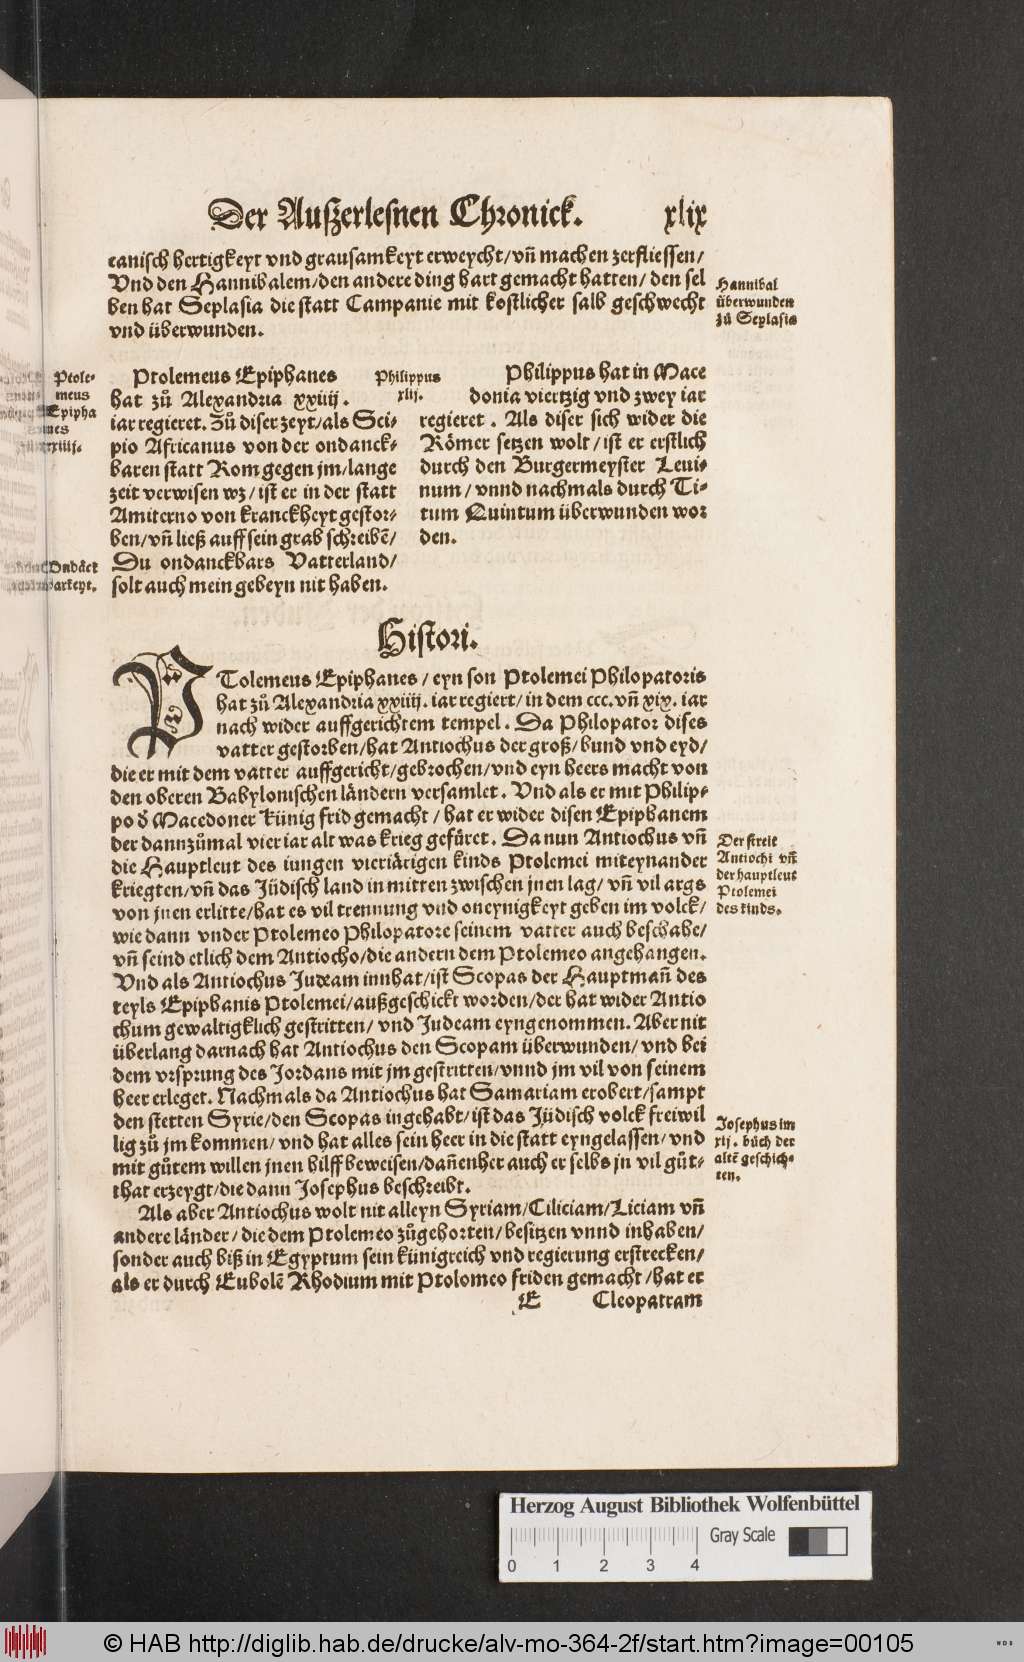 Der Außerlesnen Chronick. xlix
canisch hertigkeyt vnd grausamkeyt erweycht/vñ machen zerfliessen/
Vnd den Hannibalem/den andere ding hart gemacht hatten/den sel
ben hat Seplasia die statt Campanie mit kostlicher salb geschwecht
vnd überwunden.
Hannibal
überwunden
zů Seplasis
Ptole-
meus
Epipha
nes
xxiiij.
Ptolemeus Epiphanes
hat zů Alexandria xxiiij.
iar regieret. Zů diser zeyt/als Sci-
pio Africanus von der ondanck-
baren statt Rom gegen jm/lange
zeit verwisen wz/ist er in der statt
Amiterno von kranckheyt gestor-
ben/vñ ließ auff sein grab schreibē/
Du ondanckbars Vatterland/
solt auch mein gebeyn nit haben.
Ondāck
barkeyt.
Philippus
xlij.
Philippus hat in Mace
donia viertzig vnd zwey iar
regieret. Als diser sich wider die
Römer setzen wolt/ist er erstlich
durch den Burgermeyster Leui-
num/vnnd nachmals durch Ti-
tum Quintum überwunden wor
den.
Histori.
PTolemeus Epiphanes/eyn son Ptolemei Philopatoris
hat zů Alexandria xxiiij. iar regiert/in dem ccc.vñ xix. iar
nach wider auffgerichtem tempel. Da Philopator dises
vatter gestorben/hat Antiochus der groß/bund vnd eyd/
die er mit dem vatter auffgericht/gebrochen/vnd eyn heers macht von
den oberen Babylonischen ländern versamlet. Vnd als er mit Philip-
po d̓ Macedoner künig frid gemacht/hat er wider disen Epiphanem
der dannzůmal vier iar alt was krieg gefüret. Da nun Antiochus vñ
die Hauptleut des iungen vieriärigen kinds Ptolemei miteynander
kriegten/vñ das Jüdisch land in mitten zwischen jnen lag/vñ vil args
von jnen erlitte/hat es vil trennung vnd oneynigkeyt geben im volck/
wie dann vnder Ptolemeo Philopatore seinem vatter auch beschahe/
vñ seind etlich dem Antiocho/die andern dem Ptolemeo angehangen.
Vnd als Antiochus Judeam innhat/ist Scopas der Hauptmañ des
teyls Epiphanis Ptolemei/außgeschickt worden/der hat wider Antio
chum gewaltigklich gestritten/vnd Judeam eyngenommen. Aber nit
überlang darnach hat Antiochus den Scopam überwunden/vnd bei
dem vrsprung des Jordans mit jm gestritten/vnnd jm vil von seinem
heer erleget. Nachmals da Antiochus hat Samariam erobert/sampt
den stetten Syrie/den Scopas ingehabt/ist das Jüdisch volck freiwil
lig zů jm kommen/vnd hat alles sein heer in die statt eyngelassen/vnd
mit gůtem willen jnen hilff beweisen/dañenher auch er selbs jn vil gůt-
that erzeygt/die dann Josephus beschreibt.
Als aber Antiochus wolt nit alleyn Syriam/Ciliciam/Liciam vñ
andere länder/die dem Ptolemeo zůgehorten/besitzen vnnd inhaben/
sonder auch biß in Egyptum sein künigreich vnd regierung erstrecken/
als er durch Eubolē Rhodium mit Ptolomeo friden gemacht/hat er
E Cleopatram
Der streit
Antiochi vñ
der hauptleut
Ptolemei
des kinds.
Josephus im
xij. bůch der
altē geschich-
ten.
Herzog August Bibliothek Wolfenbüttel
Gray Scale
0 1 2 3 4
© HAB http://diglib.hab.de/drucke/alv-mo-364-2f/start.htm?image=00105